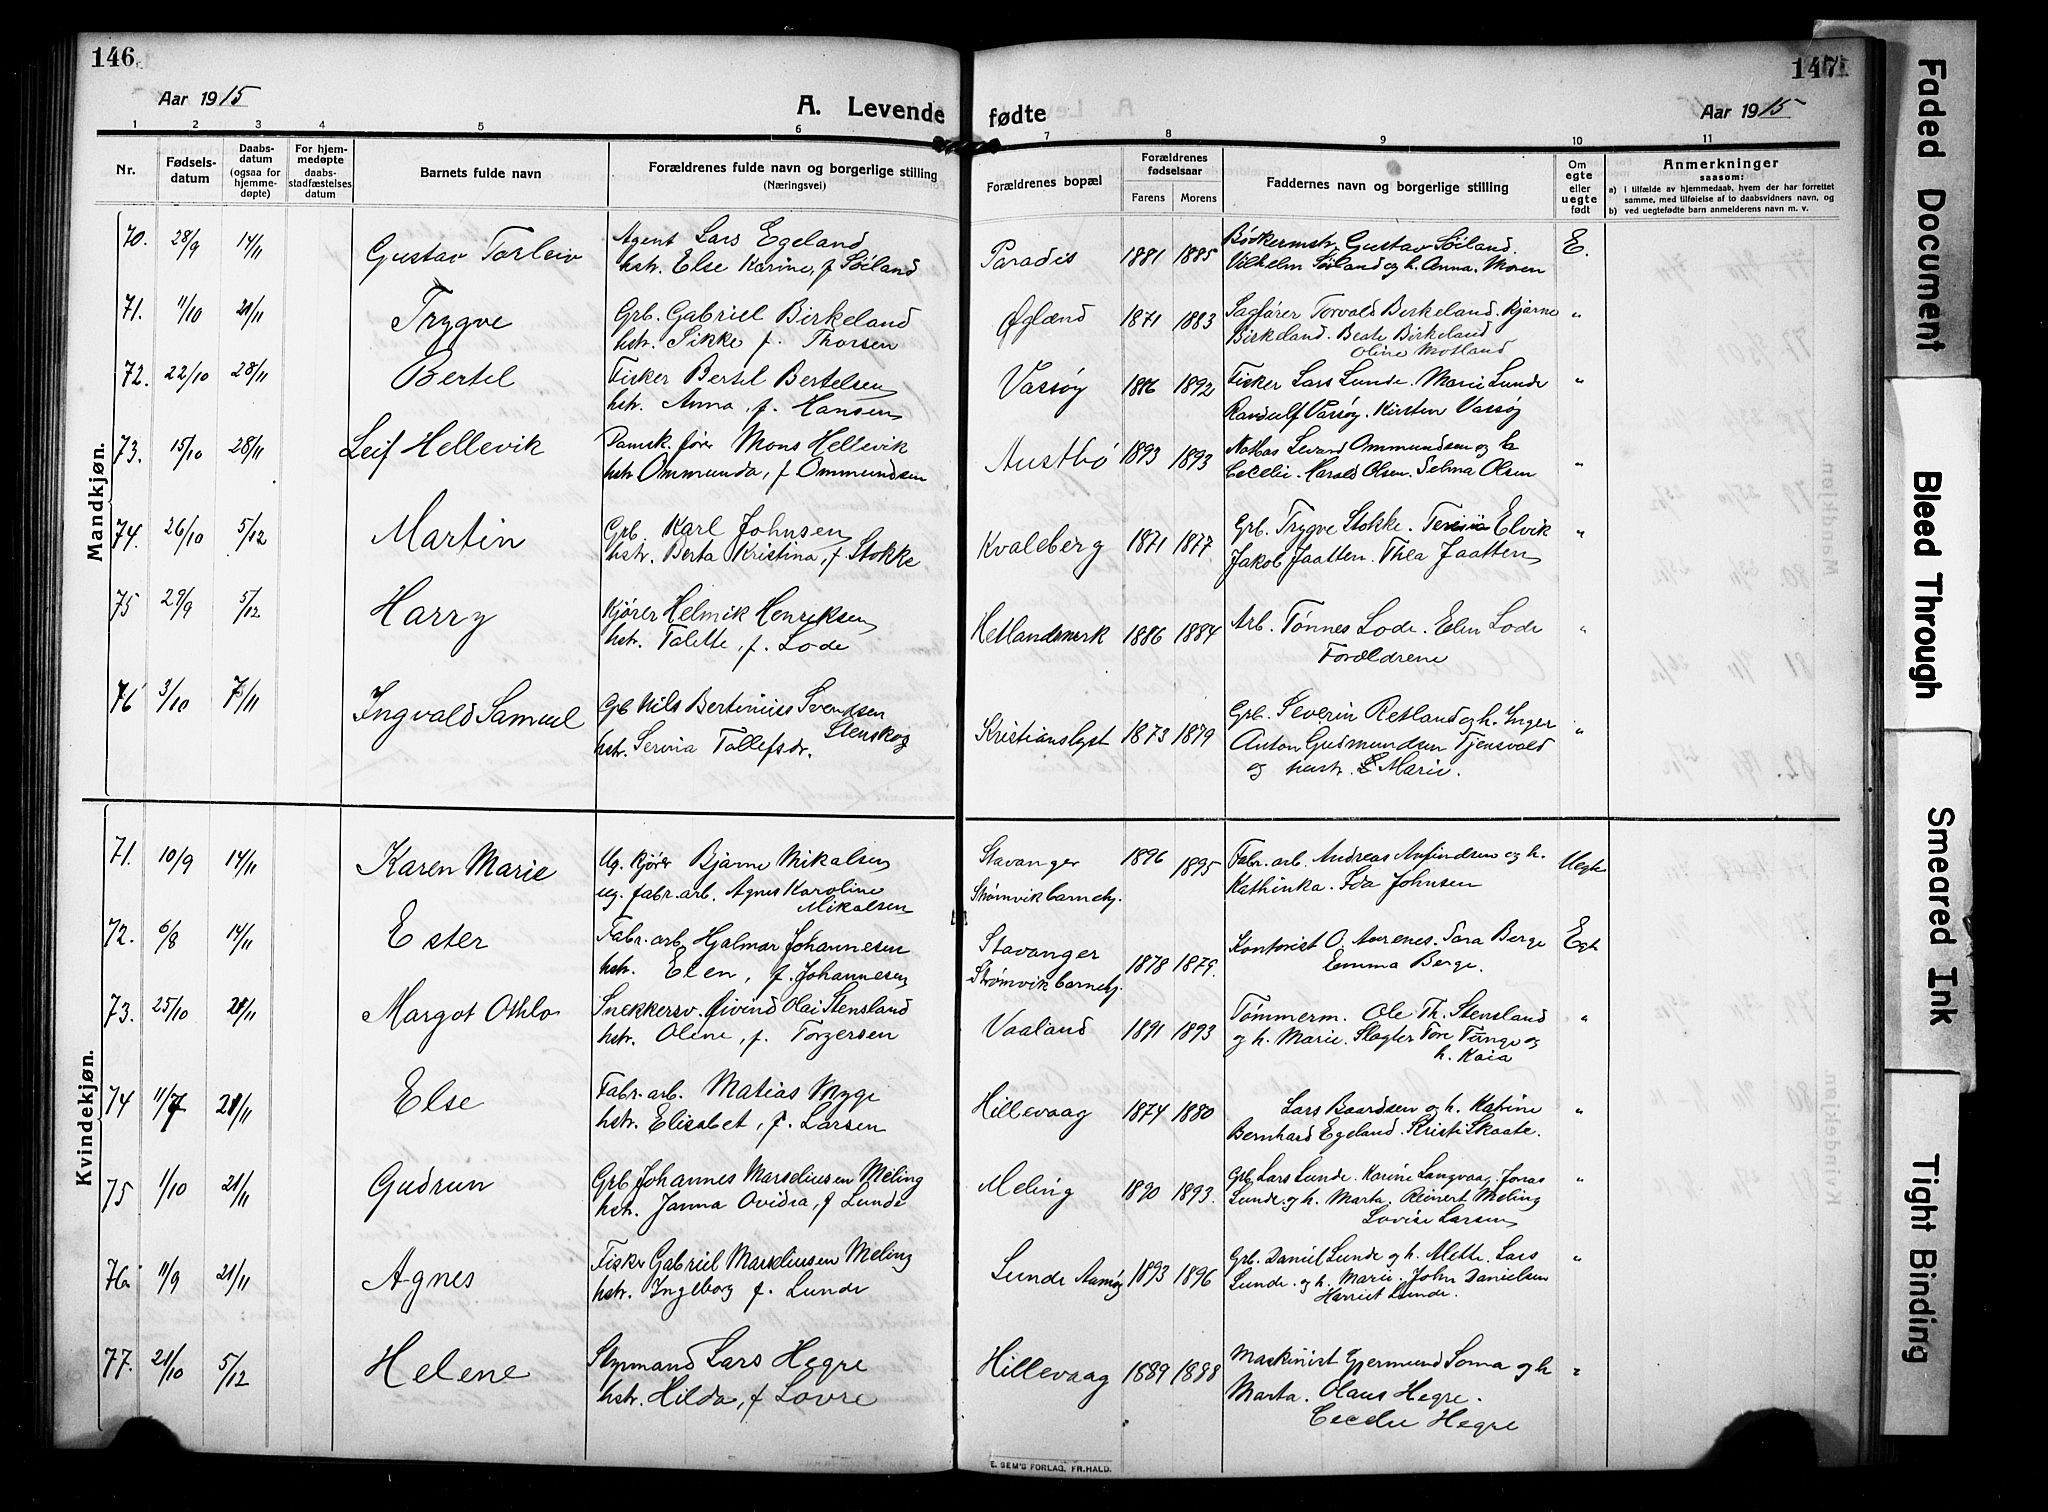 146
Aar 1915
A. Levende
1 2 3 4 5 6
Nr.
Fødselsdatum
Daabsdatum (ogsaa for hjemmedøpte)
For hjemmedøpte daabsstadfæstelses datum
Barnets fulde navn
Forældrenes fulde navn og borgerlige stilling
(Næringsvei)
Mandkjøn.
70. 28/9 14/11 Gustav Torleiv
Agent Lars Egeland
hstr. Else Karine, f Söiland
71. 11/10 21/11 Trygve
Grb. Gabriel Birkeland
hstr. Sikke f. Thorsen
72. 22/10 28/11 Bertel
Fisker Bertel Bertelsen
hstr. Anna, f. Hansen
73. 15/10 28/11 Leif Hellevik
Damsk. fører Mons Hellevik
hstr Ommunda, f Ommundsen
74. 26/10 5/12 Martin
Grb. Karl Johnsen
hstr. Berta Kristina, f Stokke
75 29/9 5/12 Harry
Kjører Helmik Henriksen
hstr. Talette, f. Lode
76 3/10 7/11 Ingvald Samuel
Grb Nils Bertinius Svendsen
Stenskog
hstr. Serina Tollefsdr.
Kvindekjøn.
71. 10/9 14/11 Karen Marie
Ug. kjører Bjarne Mikalsen
ug. fabr. arb. Agnes Karoline
Mikalsen
72. 6/8 14/11 Ester
Fabr. arb Hjalmar Johannesen
hstr. Elen, f. Johannesen
73. 25/10 21/11 Margot Othlo
Snekkersv. Eivind Olai Stensland
hstr. Oline, f. Torgersen
74 11/7 21/11 Else
Fabr. arb. Matias Myge
hstr. Elisabet, f. Larsen
75 1/10 21/11 Gudrun
Grb Johannes Marseliusen Meling
hstr. Janna Ovidia, f Lunde
76. 11/9 21/11 Agnes
Fisker Gabriel Marseliusen Meling
hstr. Ingeborg f. Lunde
77. 21/10 5/12 Helene
Styrmand Lars Hegre
hstr. Hilda, f Lovre
147
fødte
Aar 1915
7 8 9 10 11
Forældrenes bopæl
Forældrenes fødselsaar
Farens Morens
Faddernes navn og borgerlige stilling
Om egte eller uegte født
Anmerkninger
saasom:
a) i tilfælde av hjemmedaab, hvem der har forrettet samme, med tilføielse av to daabsvidners navn, og
b) ved uegtefødte barn anmelderens navn m. v.
Paradis 1881 1885
Bödkermstr. Gustav Söiland.
Vilhelm Söiland og h. Anna. Moren
E.
Øglænd 1871 1883
Sagfører Torvald Birkeland. Bjarne
Birkeland. Beate Birkeland
Oline Motland
"
Vassøy 1886 1892
Fisker Lars Lunde. Marie Lunde
Randulf Vassøy. Kirsten Vassøy
"
Austbø 1893 1893
Notbas Sevard Ommundsen og h
Cecelie. Harald Olsen. Selma Olsen
"
Kvaleberg 1871 1877
Grb. Trygve Stokke. Teresia Elvik
Jakob Jaatten. Thea Jaatten
"
Hetlandsmark 1886 1884
Arb. Tønnes Lode. Elen Lode
Forældrene
"
Kristianslyst 1873 1879
Grb. Severin Retland og h. Inger
Anton Gudmundsen Tjensvold
og hustr. Marie.
"
Stavanger
Strømvik barnehj.
1896 1895
Fabr. arb. Andreas Anfindsen og h.
Kathinka. Ida Johnsen
Uegte
Stavanger
Strømvik barnehj.
1878 1879.
Kontorist O. Aarenes. Sara Berge
Emma Berge.
Egte
Vaaland 1891 1893
Tømmerm. Ole Th. Stensland
og h. Marie. Slagter Tore Tunge og
h. Kaia
"
Hillevaag 1874 1880
Lars Baardsen og h. Katrine
Bernhard Egeland. Kristi Skaate.
"
Meling 1890 1893.
Grb Lars Lunde. Karine Langvaag. Jonas
Lunde og h. Marta. Reinert Meling
Lovise Larsen
"
Lunde Aamøy 1893 1896
Grb. Daniel Lunde og h. Alette. Lars
Lunde. og h. Marie. John Danielsen
Harriet Lunde.
"
Hillevaag 1889 1888
Maskinist Gjermund Soma og h
Marta. Olaus Hegre.
Cecelie Hegre
"
E. SEM'S FORLAG, FR.HALD.
Faded Document
Bleed Through
Smeared Ink
Tight Binding